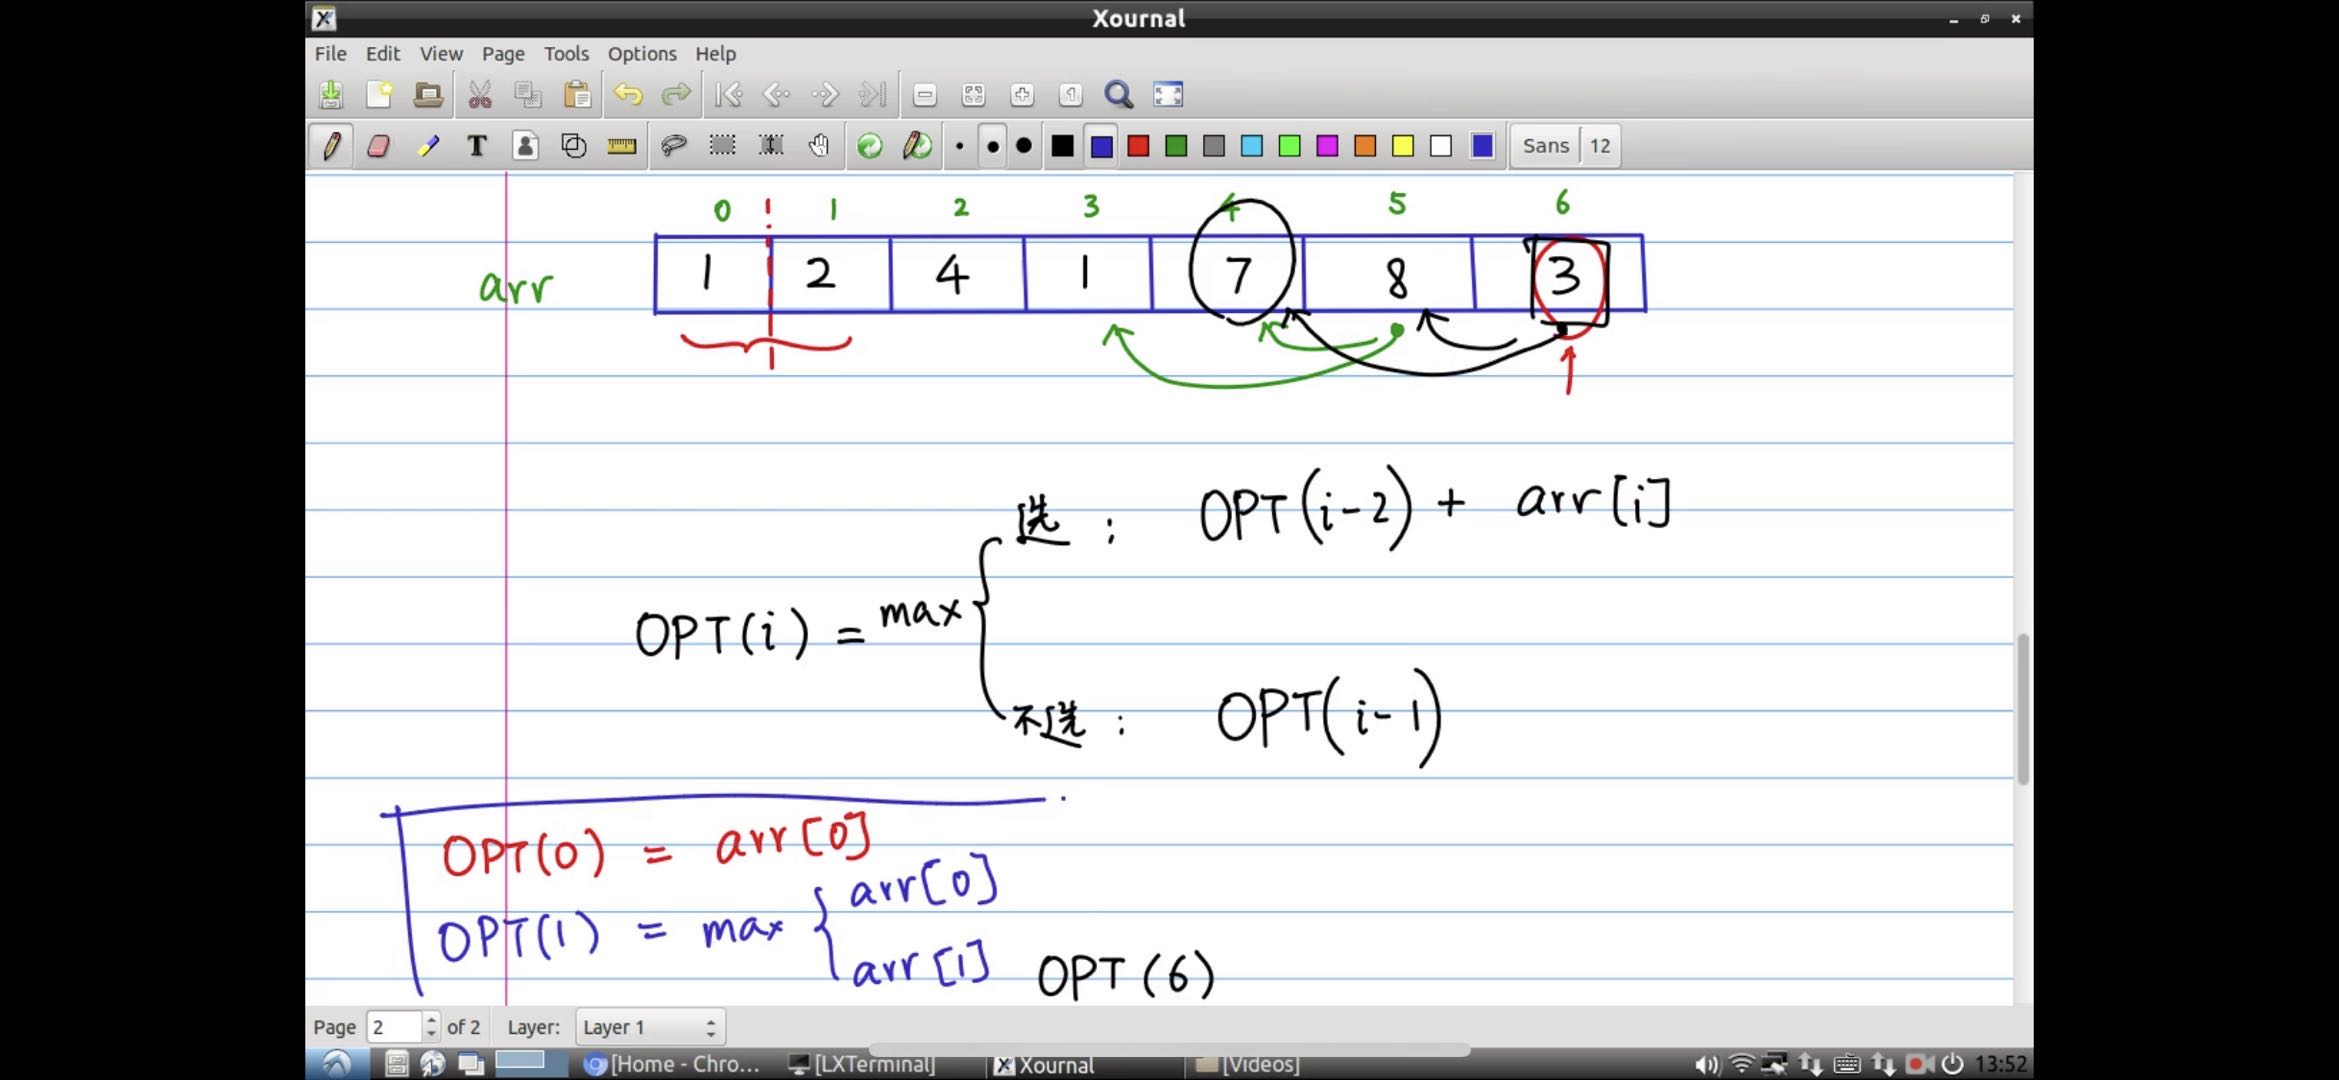 Xournal
File Edit View Page Tools Options Help
T
Sans 12
0 1 2 3 4 5 6
arr 1 2 4 1 7 8 3
选: OPT(i-2) + arr[i]
OPT(i) = max
不选: OPT(i-1)
OPT(0) = arr[0]
arr[0]
OPT(1) = max
arr[1] OPT(6)
Page 2 of 2 Layer: Layer 1
[Home - Chro... [LXTerminal] Xournal [Videos] 13:52